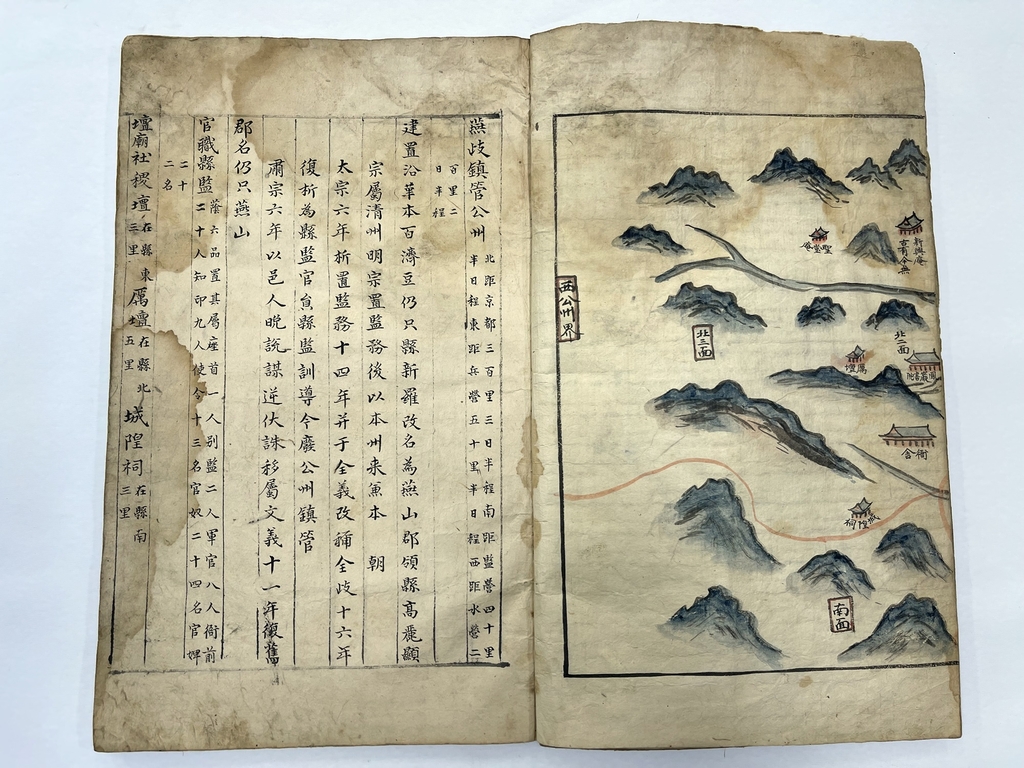 新興庵
古有今無
聖堂庵
西公州界
北三面
北二面
厲壇
衙舍
城隍祠
南面
燕歧鎮管公州北距京都三百里三日半程南距監營四十里
半日程東距兵營五十里半日程西距水營二
百里二
日半程
建置沿革本百濟豆仍只縣新羅改名為燕山郡領縣高麗顯
宗屬清州明宗置監務後以本州来兼本 朝
太宗六年析置監務十四年并于全義改稱全歧十六年
復析為縣監官貟縣監訓導今廢公州鎮管
肅宗六年以邑人晩說謀逆伏誅移屬文義十一年復舊
郡名仍只燕山
官職縣監蔭六品置其属座首一人別監二人軍官八人衙前
二十人知印九人使令十三名官奴二十四名官婢
二十
二名
壇廟社稷壇在縣東三里厲壇在縣北五里城隍祠在縣南三里